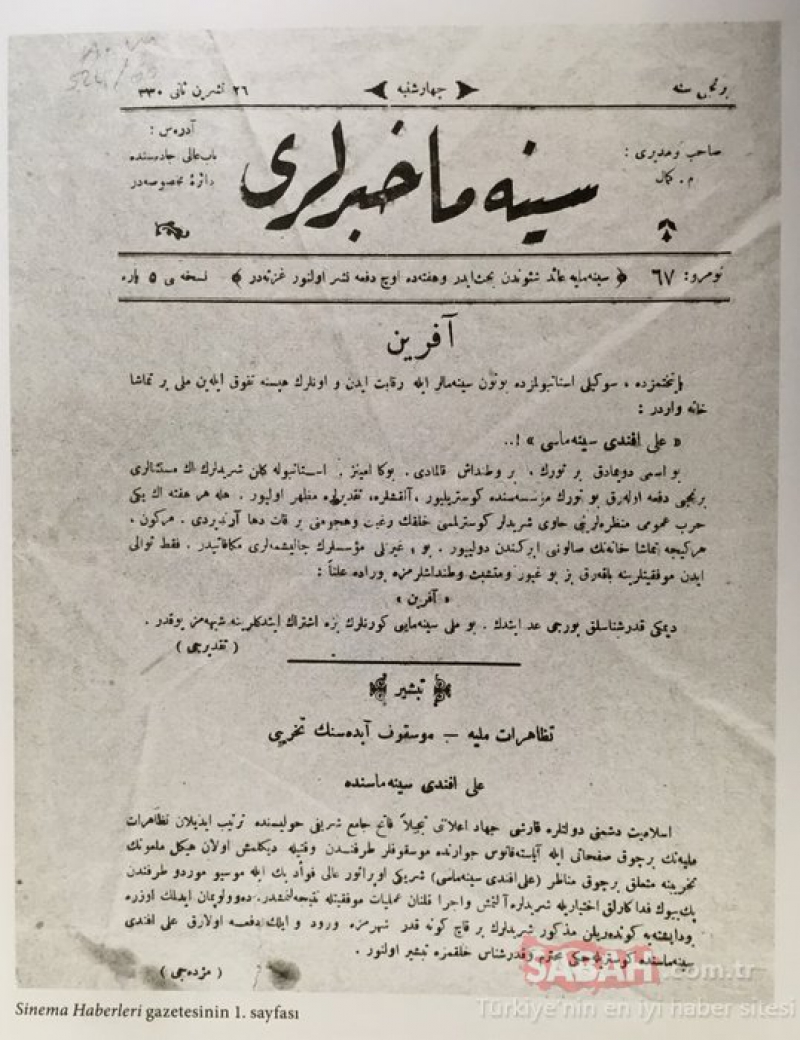 برنجی سنه
چهارشنبه
٢٦ تشرین ثانی ٣٣٠
صاحب و مدیری :
م . کمال
سینه ما خبرلری
آدرس :
باب عالی جاده سنده
دائرهٔ مخصوصه در
نومرو: ٦٧ ﴿ سینه مایه عائد شئوندن بحث ایدر و هفته ده اوچ دفعه نشر اولنور غزته در ﴾ نسخه سی ٥ پاره
آفرین
پایتختمزده ، سوکیلی استانبولمزده بوتون سینه مالر ایله رقابت ایدن و اونلرك هپسنه تفوق ایله ین ملی بر تماشا
خانه واردر :
« علی افندی سینه ماسی » !..
بو اسمی دویمادق بر تورك ، بر وطنداش قالمادی . بوکا امینز . استانبوله کلن شریدلرك اك مستثنالری
برنجی دفعه اوله رق بو تورك مؤسسه سنده کوستریلیور ، آلقشلره ، تقدیرلره مظهر اولیور . هله هر هفته اك یکی
حرب عمومی منظره لرینی حاوی شریدلر کوسترلمسی خلقك رغبت و هجومنی بر قات دها آرتدیردی . هرکون ،
هرکیجه تماشا خانه نك صالونی ایرکندن دولیور . بو ، غیرتلی مؤسسلرك چالیشمه لری مکافاتیدر . فقط توالی
ایدن موفقیتلرینه باقه رق بز بو غیور و متشبث وطنداشلرمزه بوراده علناً :
« آفرین »
دیمکی قدرشناسلق بورجی عد ایتدك . بو ملی سینه مایی کورنلرك بزه اشتراك ایتدکلرینه شبهه مز یوقدر .
( تقدیرجی )
تبشیر
تظاهرات ملیه — موسقوف آبده سنك تخریبی
علی افندی سینه ماسنده
اسلامیت دشمنی دولتلره قارشی جهاد اعلانی تبجیلاً فاتح جامع شریفی حولیسنده ترتیب ایدیلان تظاهرات
ملیه نك برچوق صفحاتی ایله آیاستفانوس جوارنده موسقوفلر طرفندن وقتیله دیکلمش اولان هیکل ملعونك
تخریبنه متعلق برچوق مناظر (علی افندی سینه ماسی) شریکی اوپراتور عالی فؤاد بك ایله موسیو موردو طرفندن
پك بیوك فداکارلق اختیاریله شریدلره آلنمش و اجرا قلنان عملیات موفقیتله نتیجه لنمشدر. ده وولوپمان ایدلك اوزره
بوداپشته یه کوندریلن مذکور شریدلرك بر قاچ کونه قدر شهرمزه ورود و ایلك دفعه اولارق علی افندی
سینه ماسنده کوستریله جکی محترم و قدرشناس خلقمزه تبشیر اولنور .
( مژده جی )
SABAH.com.tr
Sinema Haberleri gazetesinin 1. sayfası
Türkiye'nin en iyi haber sitesi